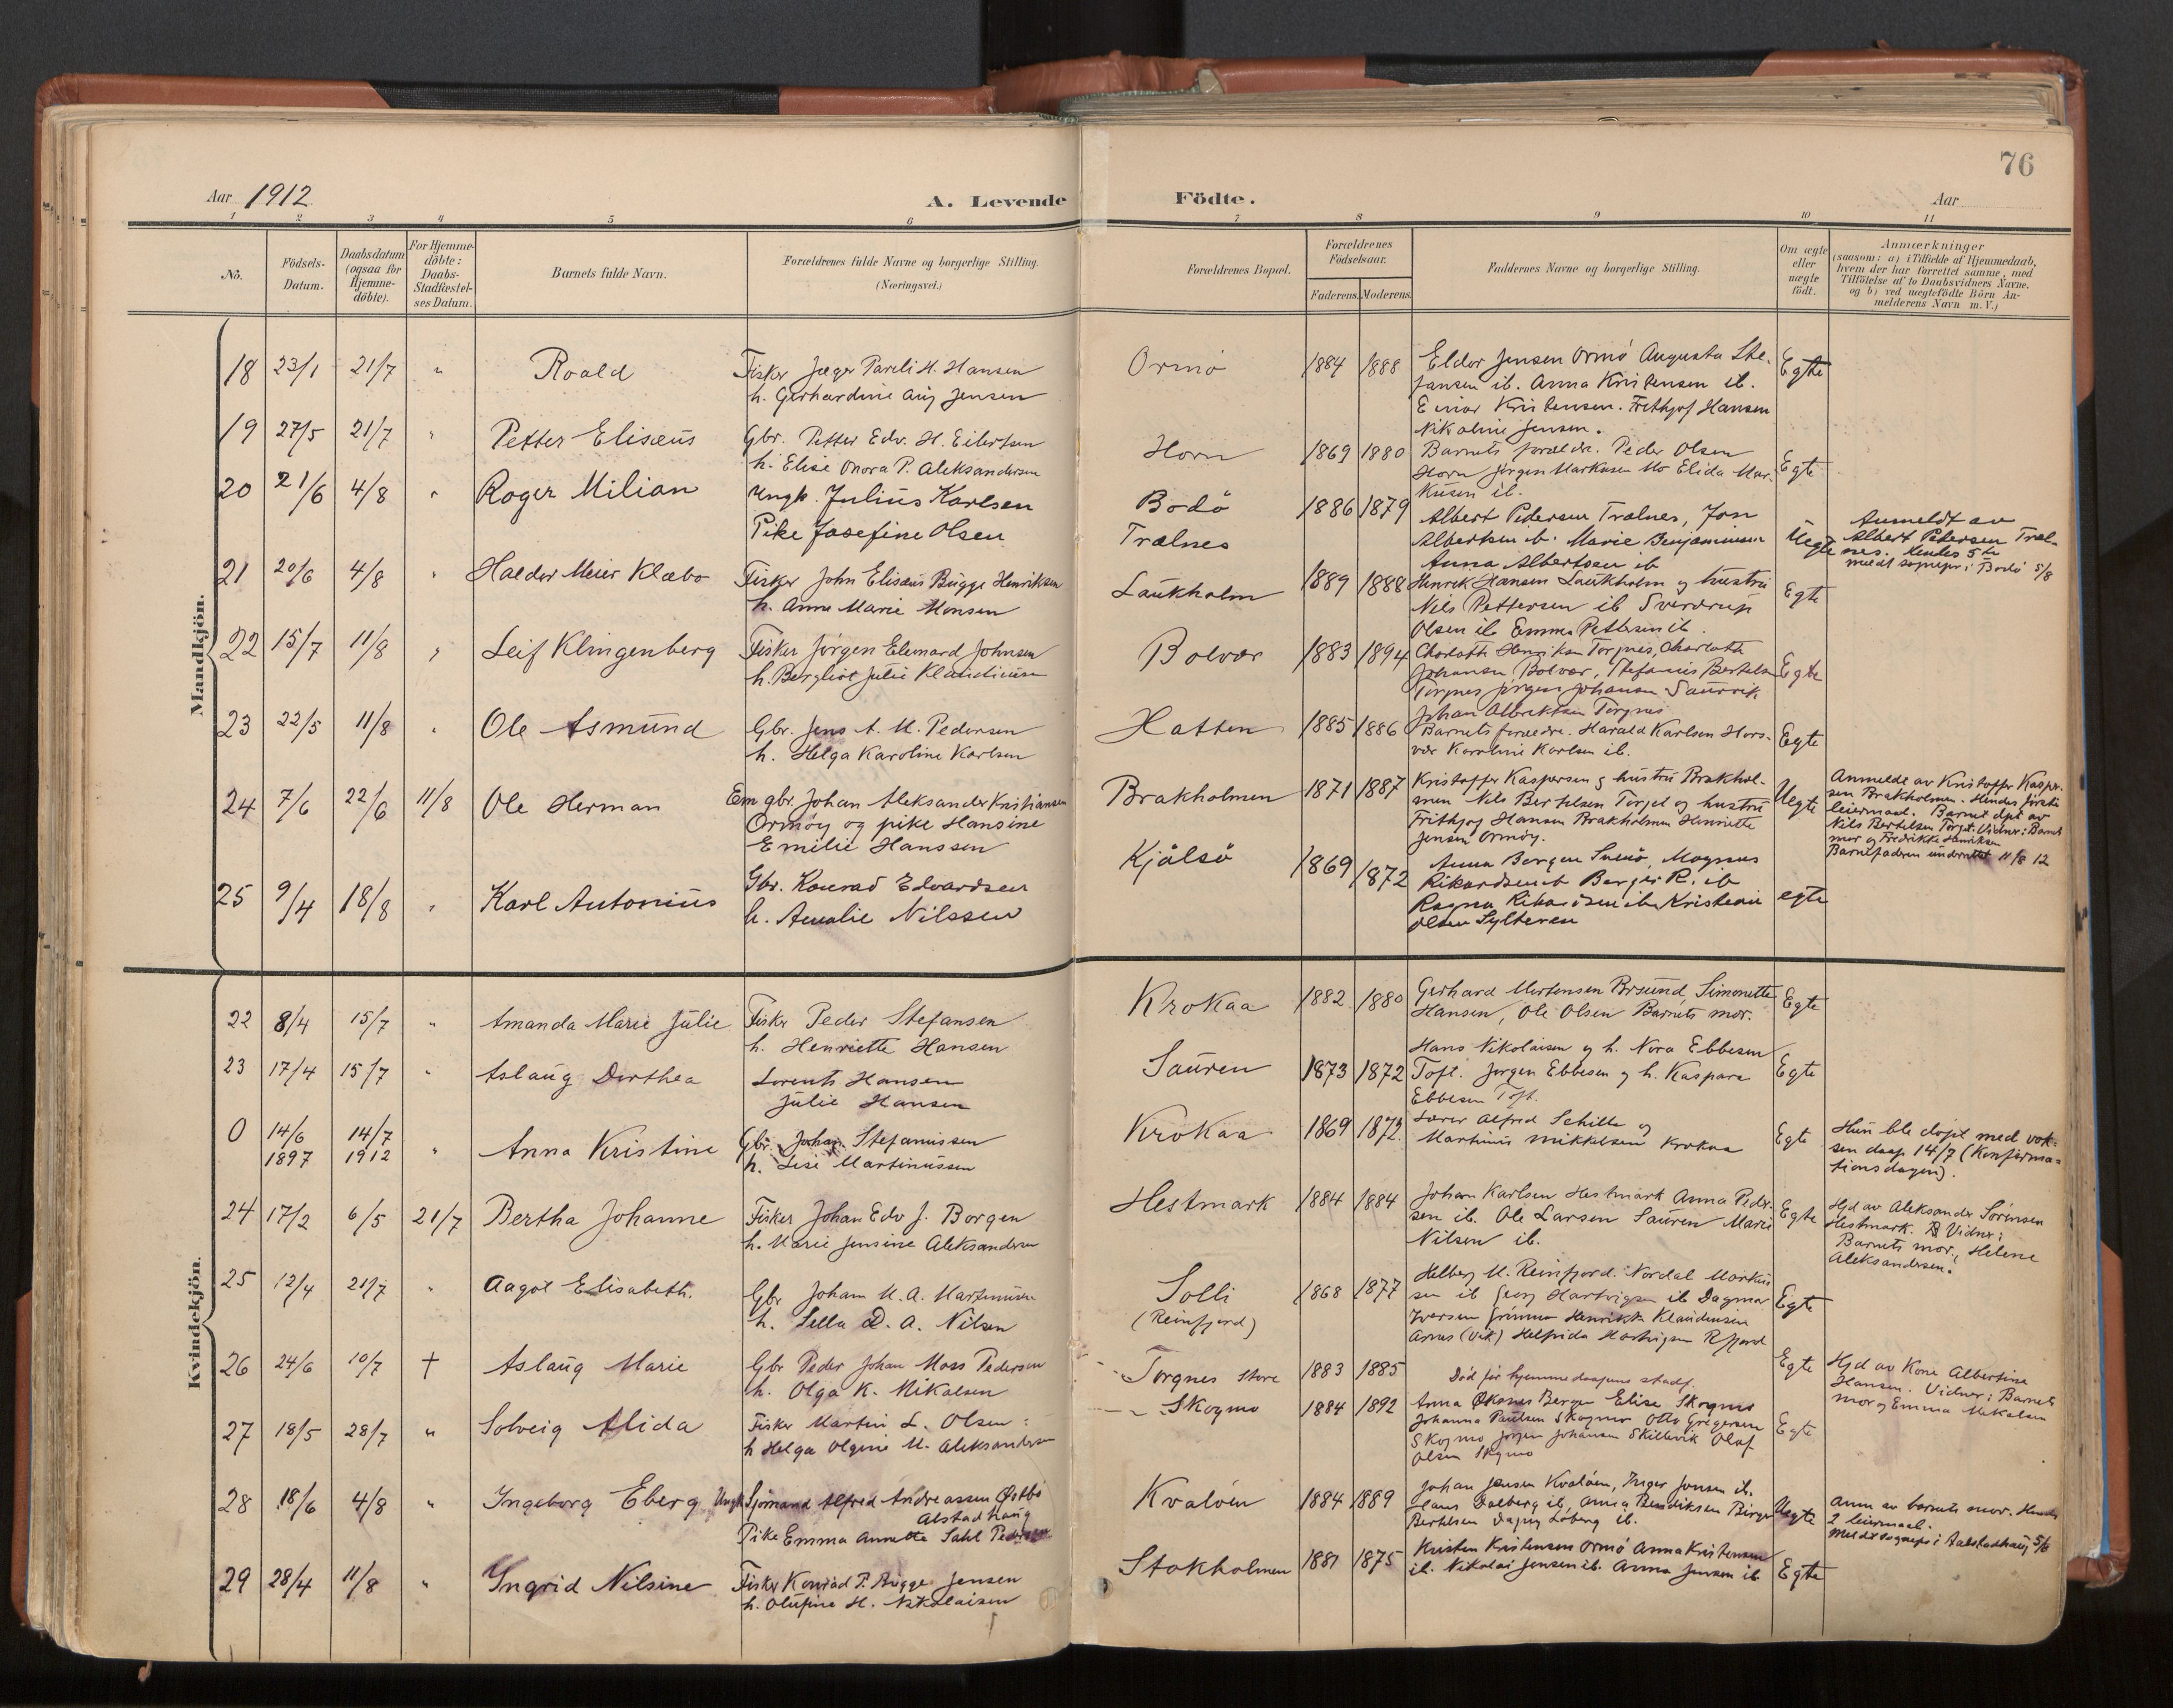 76
Aar 1912
A. Levende Födte.
Aar
1 2 3 4 5 6 7 8 9 10 11
No.
Födsels-
Datum.
Daabsdatum
(ogsaa for
Hjemme-
döbte).
For Hjemme-
döbte:
Daabs-
Stadfæstel-
ses Datum.
Barnets fulde Navn.
Forældrenes fulde Navne og borgerlige Stilling.
(Næringsvei.)
Forældrenes Bopæl.
Forældrenes
Födselsaar.
Faderens. Moderens.
Faddernes Navne og borgerlige Stilling.
Om ægte
eller
uægte
födt.
Anmærkninger
(saasom: a) i Tilfælde af Hjemmedaab,
hvem der har forrettet samme, med
Tilföielse af to Daabsvidners Navne.
og b) ved uægtefödte Börn An-
melderens Navn m. V.)
Mandkjön.
18 23/1 21/7 " Roald
Fisker Jæger Pareli H. Hansen
h. Gerhardine Aug Jensen
Ormø 1884 1888
Eldor Jensen Ormø Augusta Ste-
fansen ib. Anna Kristensen ib.
Einar Kristensen. Frithjof Hansen
Nikoline Jensen.
Egte
19 27/5 21/7 " Petter Elisæus
Gbr. Petter Edv. H. Eilertsen
h. Elise Onora P. Aleksandersen
Horn 1869 1880
Barnets forældr. Peder Olsen
Horn Jørgen Markusen Mo Elida Mar-
kusen ib.
Egte
20 21/6 4/8 " Roger Milian
Ungk. Julius Karlsen
Pike Josefine Olsen
Bodö
Trælnes
1886 1879
Albert Pedersen Trælnes, Jon
Albertsen ib. Marie Benjaminsen
Anna Albertsen ib
Uegte
Anmeldt av
Albert Petersen Træl-
nes. Hendes 5te
meldt sognepr. i Bodö 5/8
21 20/6 4/8 " Haldor Meier Klæbo
Fisker John Elisæus Bugge Henriksen
h. Anna Marie Monsen
Laukholm 1889 1888
Henrik Hansen Laukholm og hustru
Nils Pettersen ib Sverdrup
Olsen ib Emma Pettersen ib.
Egte
22 15/7 11/8 " Leif Klingenberg
Fisker Jörgen Elemard Johnsen
h. Bergliot Julie Klaudiusen
Bolvær 1883 1894
Charlotte Henriksen Torgnes, Charlotte
Johansen Bolvær, Stefanus Bertelsen
Torgnes Jörgen Johansen Saurvik
Johan Albriktsen Torgnes
Egte
23 22/5 11/8 " Ole Asmund
Gbr. Jens A. M. Pedersen
h. Helga Karoline Karlsen
Hatten 1885 1886
Barnets forældre. Harald Karlsen Hors-
vær Karoline Karlsen ib.
Egte
24 7/6 22/6 11/8 Ole Herman
Em gbr. Johan Aleksander Kristiansen
Ormöy og pike Hansine
Emilie Hanssen
Brakholmen 1871 1887
Kristoffer Kaspersen og hustru Brakhol-
men Nils Bertelsen Torget og hustru
Frithjof Hansen Brakholmen Henriette
Jensen Ormöy.
Uegte
Anmeldt av Kristoffer Kasper-
sen Brakholmen. Hendes første
leiermaal. Barnet døpt av
Nils Bertelsen Torget. Vidner: Barnets
mor og Fredrikke Henriksen
Barnefaderen underrettet 11/8 12
25 9/4 18/8 " Karl Antonius
Gbr. Konrad Edvardsen
h. Amalie Nilssen
Kjålsö 1869 1872
Anna Borgen, Magnus
Rikardsen ib Berger R. ib
Ragna Rikardsen ib Kristian
Olsen Sylteren
egte
Kvindekjön.
22 8/4 15/7 " Amanda Marie Julie
Fisker Peder Stefansen
h. Henriette Hansen
Krokaa 1882 1880
Gerhard Mortensen Brsund, Simonette
Hansen, Ole Olsen Barnets mor.
Egte
23 17/4 15/7 " Aslaug Dorthea
Lorents Hansen
Julie Hansen
Sauren 1873 1872
Hans Nikolaisen og h. Nora Ebbesen
Toft. Jørgen Ebbesen og h. Kaspara
Ebbesen Toft.
Egte
0 14/6 1897 14/7 1912 " Anna Kristine
Gbr. Johan Stefanussen
h. Lise Martinussen
Krokaa 1869 1872.
Lærer Alfred Schille og
Martinus Mikkelsen Krokaa
Egte
Hun ble døpt med vok-
sen daap 14/7 (Konfirma-
tionsdagen).
24 17/2 6/5 21/7 Bertha Johanne
Fisker Johan Edv J. Borgen
h. Marie Jensine Aleksandersen
Hestmark 1884 1884
Johan Karlsen Hestmark Anna Peder-
sen ib. Ole Larsen Sauren Marie
Nilsen ib.
Egte
Hjd av Aleksander Sørensen
Hestmark. Vidner:
Barnets mor, Helene
Aleksandersen.
25 12/4 21/7 " Aagot Elisabeth.
Gbr Johan M. A. Martinusen
h. Sella D. A. Nilsen
Solli
(Reinfjord)
1868 1877
Helberg M. Reinfjord. Nordal Markus
sen ib Georg Hartvigsen ib Dagmar
Iversen Henrikke Klaudiusen
Arnes (Vik) Helfrida Hartvigsen R.fjord
Egte
26 24/6 10/7 † Aslaug Marie
Gbr Peder Johan Moss Pedersen
h. Olga K. Mikalsen
Torgnes Store 1883 1885
Död før hjemmedaapens stadf.
Egte
Hjd av Kone Albertine
Hansen. Vidner: Barnets
mor og Emma Mikalsen
27 18/5 28/7 " Solveig Alida
Fisker Martin L. Olsen
h Helga Olgine M. Aleksandersen
Skogmo 1884 1892
Anna Øksnes Berger Elise Skogmo
Johanna Paulsen Skogmo Otto Gregersen
Skogmo Jörgen Johansen Skillevik Olaf
Olsen Skogmo
Egte
28 18/6 4/8 " Ingeborg Eberg
Ungk Sjömand Alfred Andreassen Østbö
Alstadhaug
Pike Emma Annette Sahl Pedersen
Kvalöen 1884 1889
Johan Jensen Kvalöen, Inger Jensen ib.
Hans Dalberg ib, Anna Bendiksen Birger
Bertelsen Dagny Loberg ib.
Uegte
Anm av barnets mor. Hendes
2 leiermaal.
Meldt sognepr i Aalstadhaug 5/8
29 28/4 11/8 " Ingrid Nilsine
Fisker Konrad P. Bugge Jensen
h. Olufine H. Nikolaisen
Stokholmen 1881 1875
Kristen Kristensen Ormö Anna Kristensen
ib. Nikolai Jensen ib. Anna Jensen ib
Egte